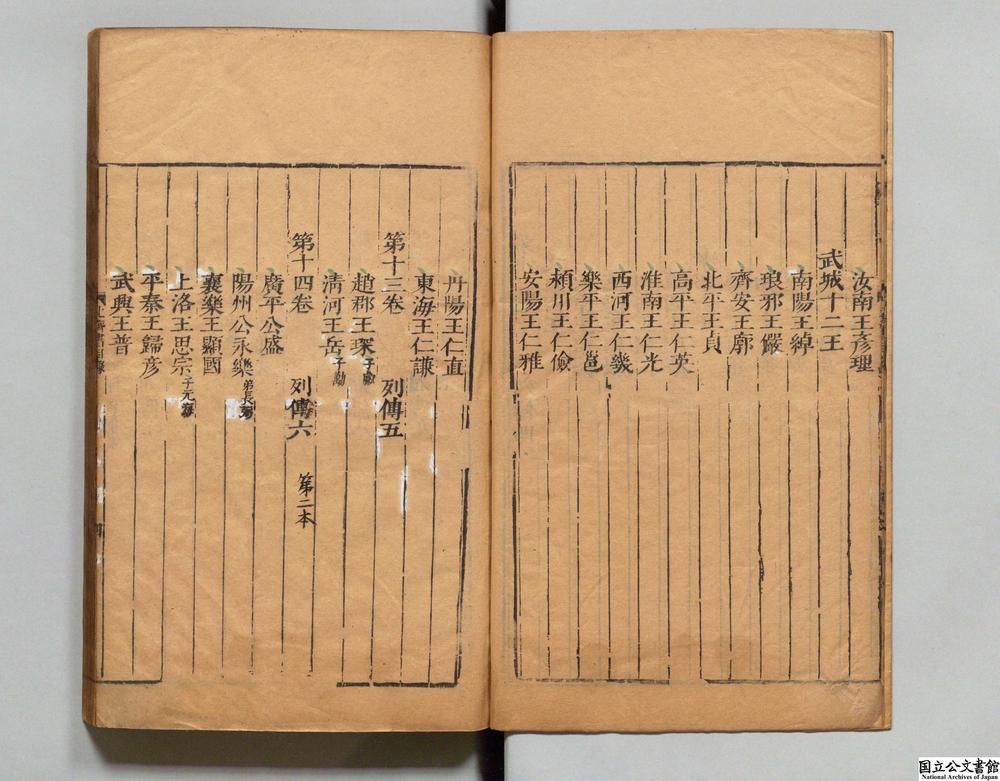 汝南王彥理
武城十二王
南陽王綽
琅邪王儼
齊安王廓
北平王貞
高平王仁英
淮南王仁光
西河王仁幾
樂平王仁邕
潁川王仁儉
安陽王仁雅
丹陽王仁直
東海王仁謙
第十三卷 列傳五
趙郡王琛子叡
淸河王岳子勱
第十四卷 列傳六 第二本
廣平公盛
陽州公永樂弟長弼
襄樂王顯國
上洛王思宗子元海
平秦王歸彥
武興王普
国立公文書館
National Archives of Japan